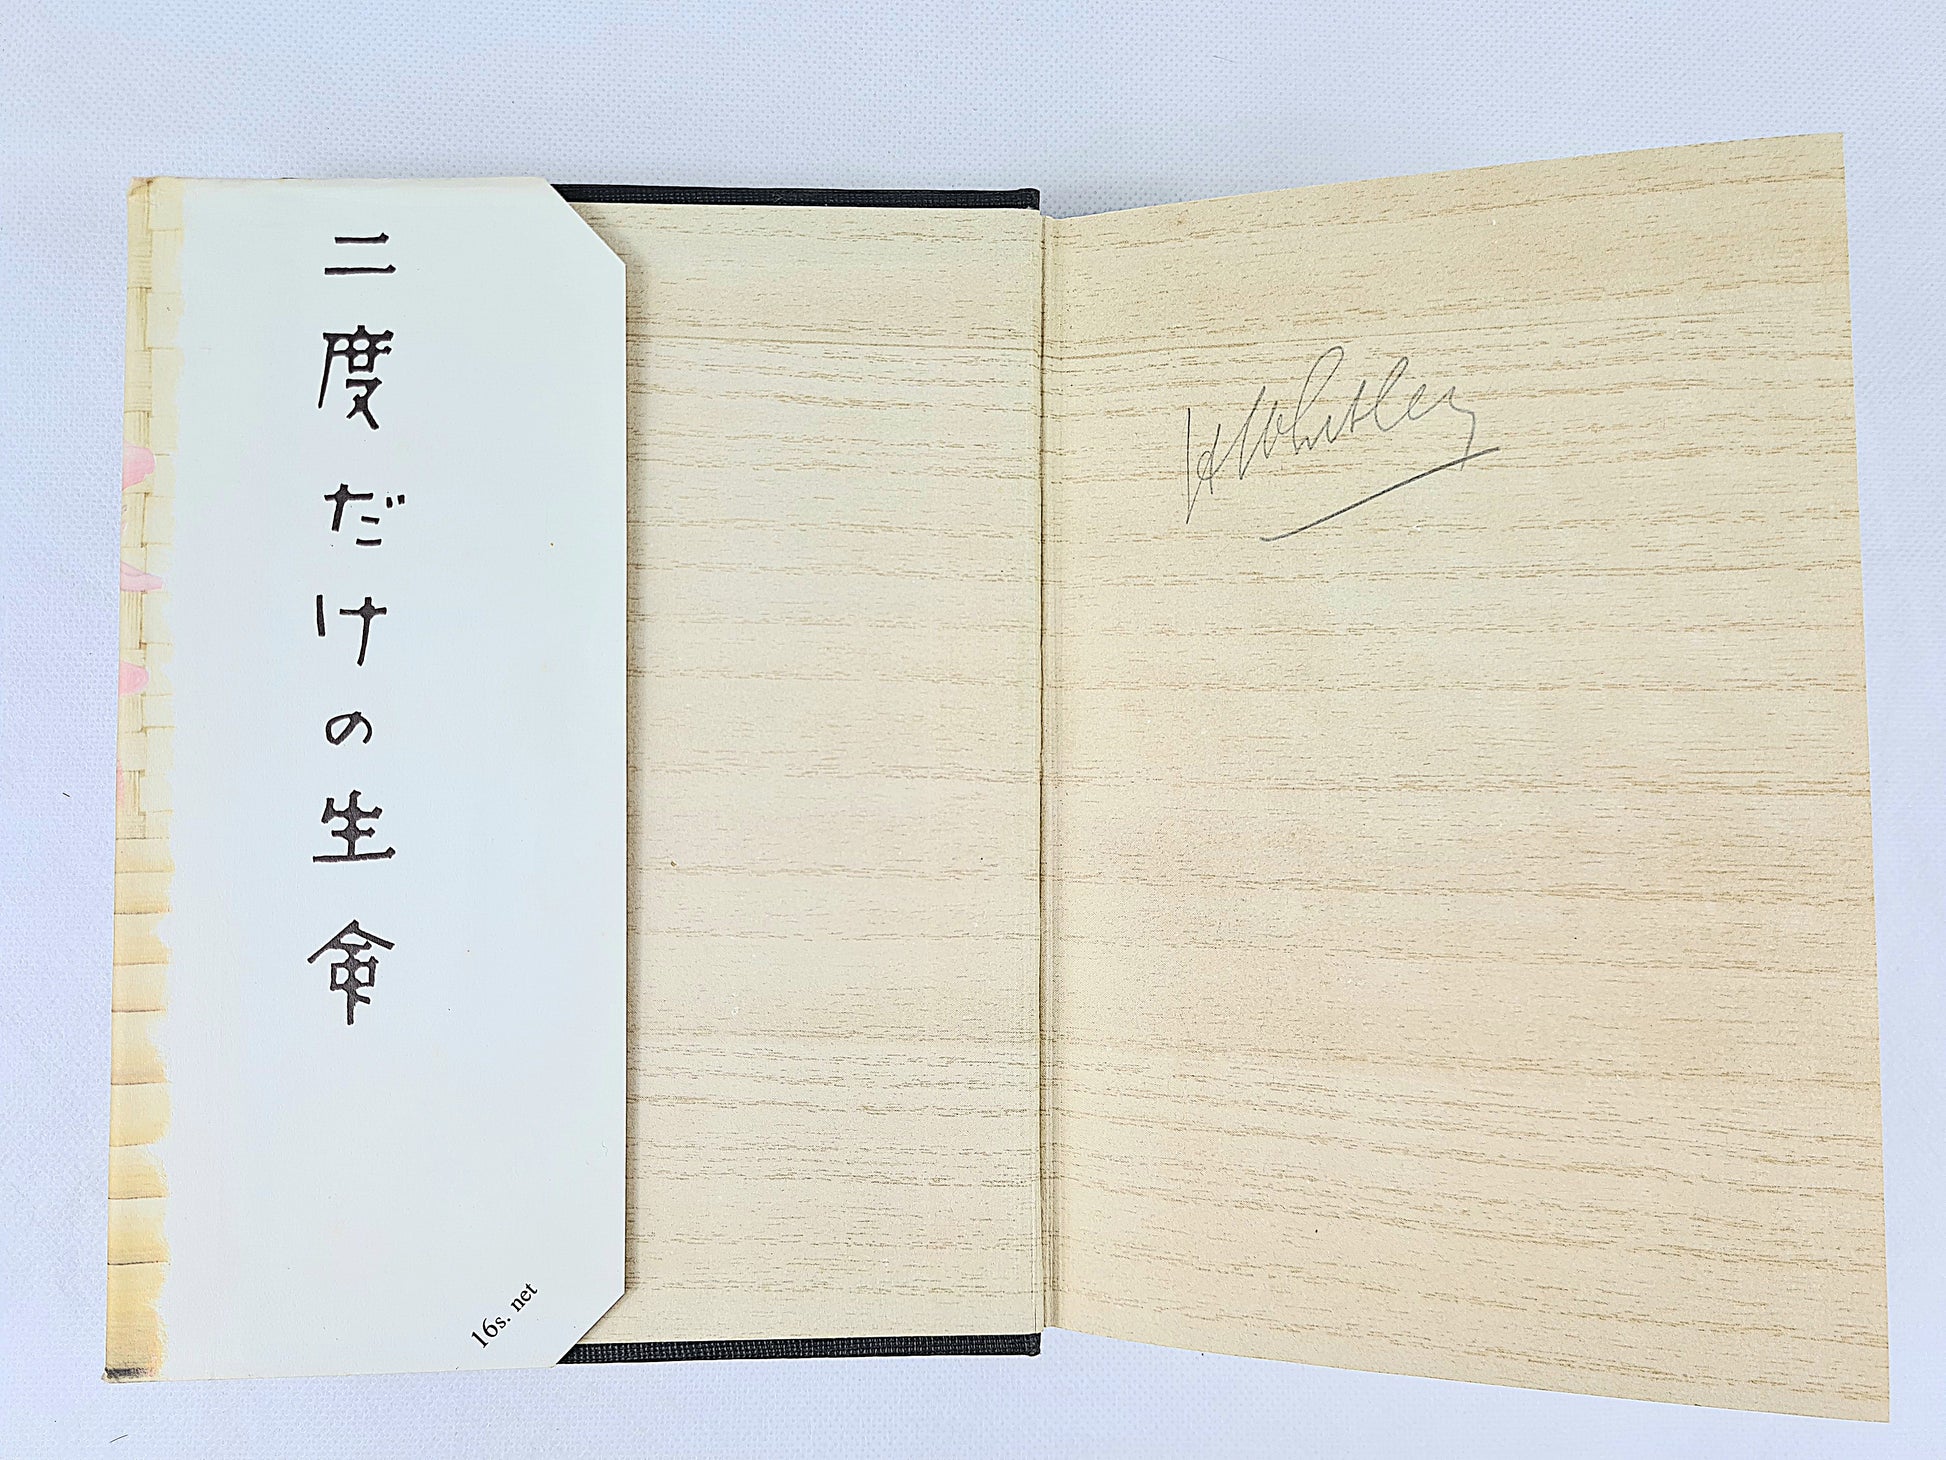 二度だけの生命
16s. net
H Whitley